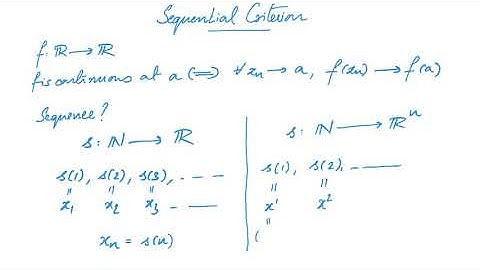 Sequential Criterion
f: ℝ → ℝ
f is continuous at a ⟺ ∀ xₙ → a, f(xₙ) → f(a)
Sequence?
s: ℕ → ℝ
s(1), s(2), s(3), - - -
= = =
x₁ x₂ x₃ - ——
xₙ = s(n)
s: ℕ → ℝⁿ
s(1), s(2), - ———
= =
x¹ x²
=
(